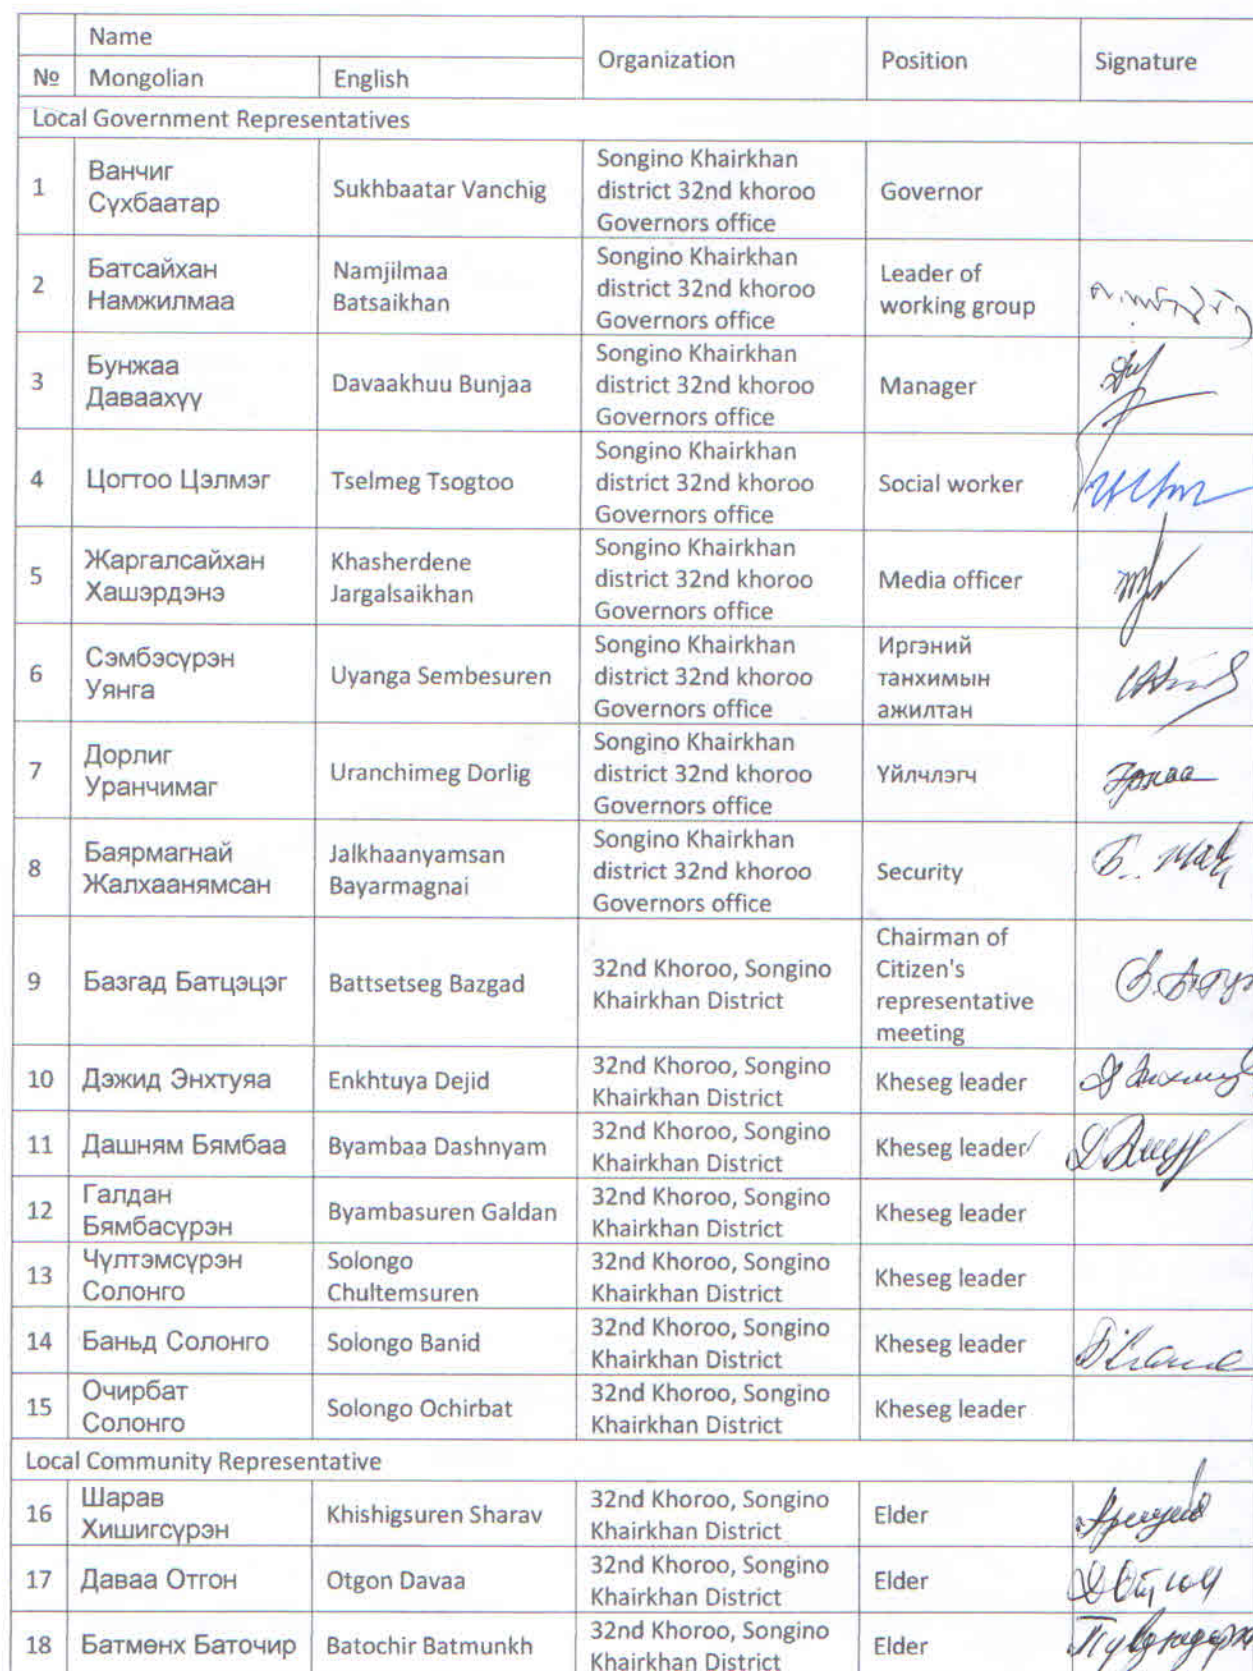 Name
Organization
Position
Signature
№
Mongolian
English
Local Government Representatives
1
Ванчиг
Сүхбаатар
Sukhbaatar Vanchig
Songino Khairkhan
district 32nd khoroo
Governors office
Governor
2
Батсайхан
Намжилмаа
Namjilmaa
Batsaikhan
Songino Khairkhan
district 32nd khoroo
Governors office
Leader of
working group
3
Бунжаа
Даваахүү
Davaakhuu Bunjaa
Songino Khairkhan
district 32nd khoroo
Governors office
Manager
4
Цогтоо Цэлмэг
Tselmeg Tsogtoo
Songino Khairkhan
district 32nd khoroo
Governors office
Social worker
5
Жаргалсайхан
Хашэрдэнэ
Khasherdene
Jargalsaikhan
Songino Khairkhan
district 32nd khoroo
Governors office
Media officer
6
Сэмбэсүрэн
Уянга
Uyanga Sembesuren
Songino Khairkhan
district 32nd khoroo
Governors office
Иргэний
танхимын
ажилтан
7
Дорлиг
Уранчимаг
Uranchimeg Dorlig
Songino Khairkhan
district 32nd khoroo
Governors office
Үйлчлэгч
8
Баярмагнай
Жалхаанямсан
Jalkhaanyamsan
Bayarmagnai
Songino Khairkhan
district 32nd khoroo
Governors office
Security
9
Базгад Батцэцэг
Battsetseg Bazgad
32nd Khoroo, Songino
Khairkhan District
Chairman of
Citizen's
representative
meeting
10
Дэжид Энхтуяа
Enkhtuya Dejid
32nd Khoroo, Songino
Khairkhan District
Kheseg leader
11
Дашням Бямбаа
Byambaa Dashnyam
32nd Khoroo, Songino
Khairkhan District
Kheseg leader
12
Галдан
Бямбасүрэн
Byambasuren Galdan
32nd Khoroo, Songino
Khairkhan District
Kheseg leader
13
Чүлтэмсүрэн
Солонго
Solongo
Chultemsuren
32nd Khoroo, Songino
Khairkhan District
Kheseg leader
14
Баньд Солонго
Solongo Banid
32nd Khoroo, Songino
Khairkhan District
Kheseg leader
15
Очирбат
Солонго
Solongo Ochirbat
32nd Khoroo, Songino
Khairkhan District
Kheseg leader
Local Community Representative
16
Шарав
Хишигсүрэн
Khishigsuren Sharav
32nd Khoroo, Songino
Khairkhan District
Elder
17
Даваа Отгон
Otgon Davaa
32nd Khoroo, Songino
Khairkhan District
Elder
18
Батмөнх Баточир
Batochir Batmunkh
32nd Khoroo, Songino
Khairkhan District
Elder